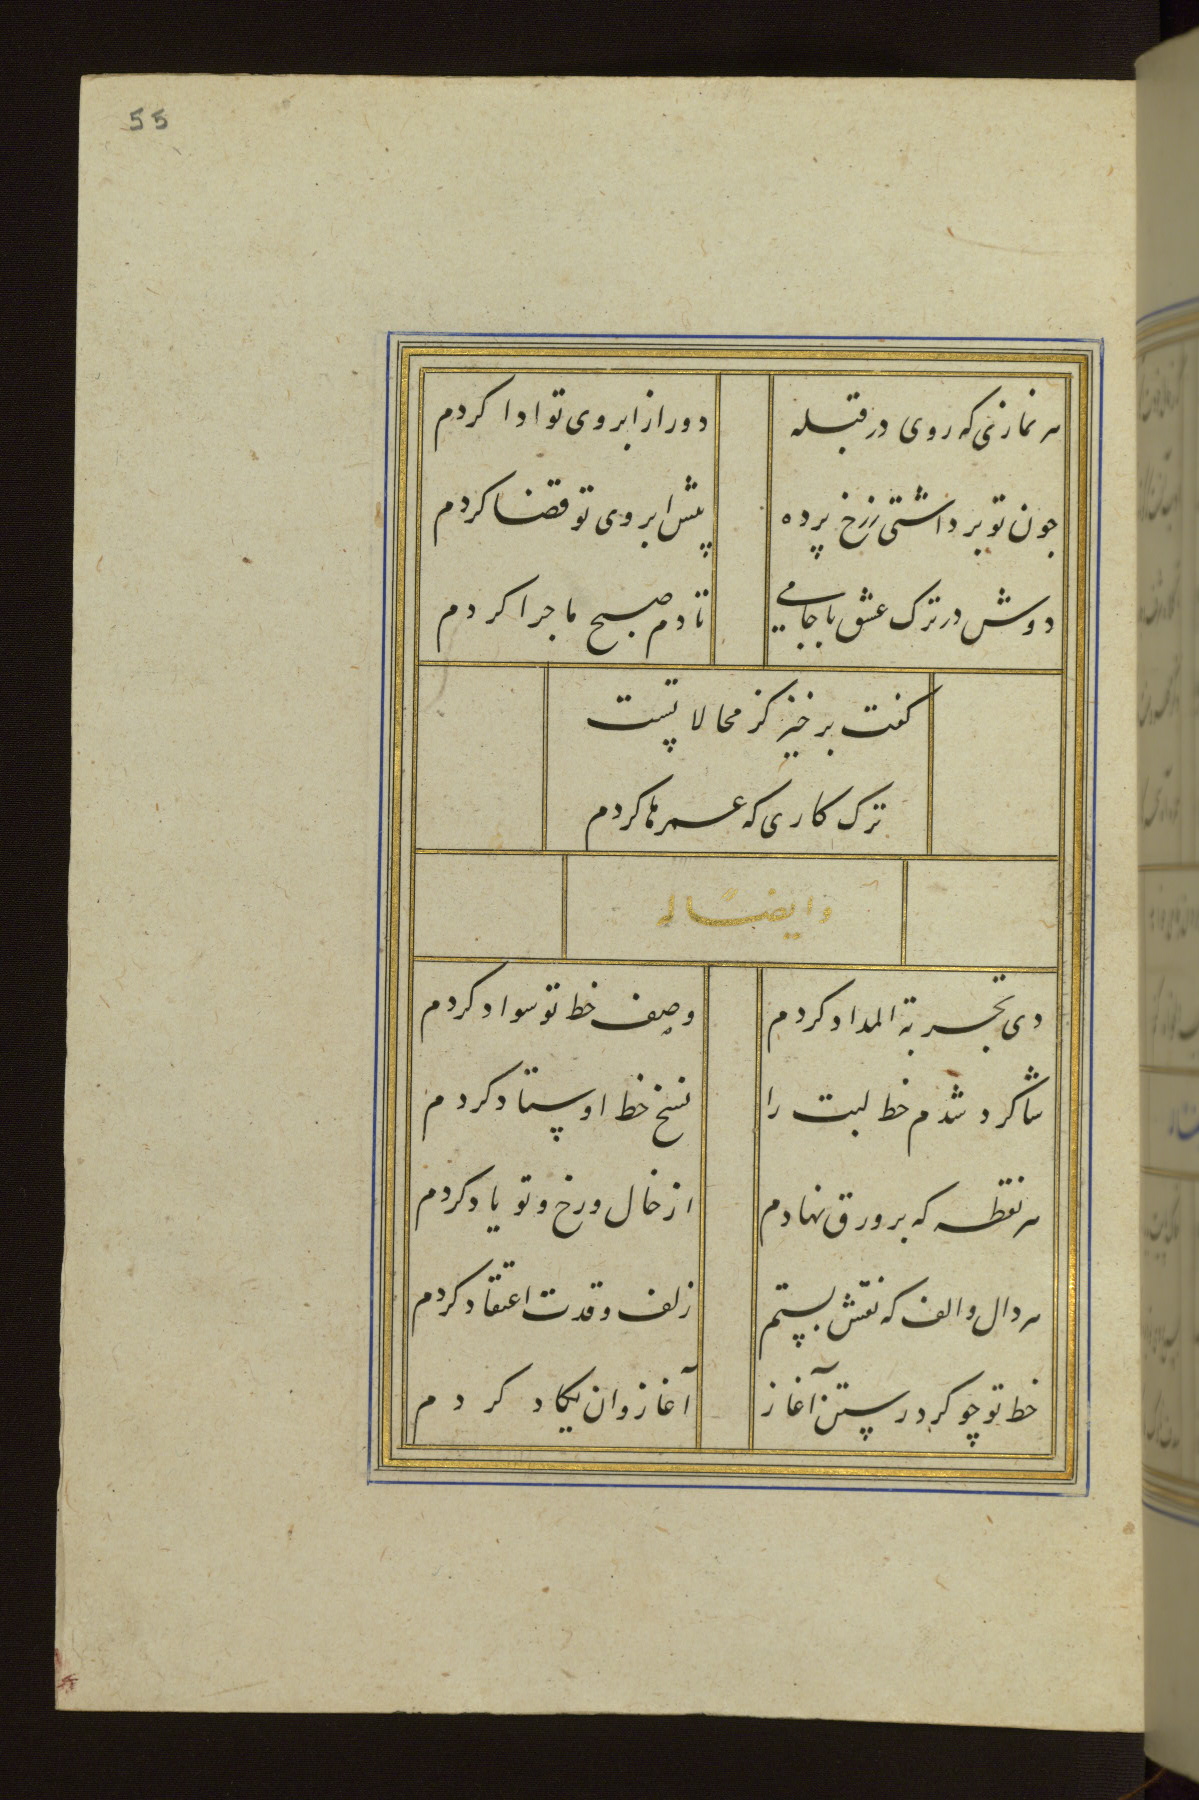 55
هر نمازی که روی در قبله دور از ابروی تو ادا کردم
چون تو برداشتی ز رخ پرده پیش ابروی تو قضا کردم
دوش در ترک عشق با جامی تا دم صبح ماجرا کردم
گفت برخیز کز محالاتست
ترک کاری که عمرها کردم
وایضا له
دی تجربة المداد کردم وصف خط تو سواد کردم
شاگرد شدم خط لبت را نسخ خط اوستاد کردم
هر نقطه که بر ورق نهادم از خال و رخ و تو یاد کردم
هر دال و الف که نقش بستم زلف و قدت اعتقاد کردم
خط تو چو کرد رستن آغاز آغاز وان یکاد کردم